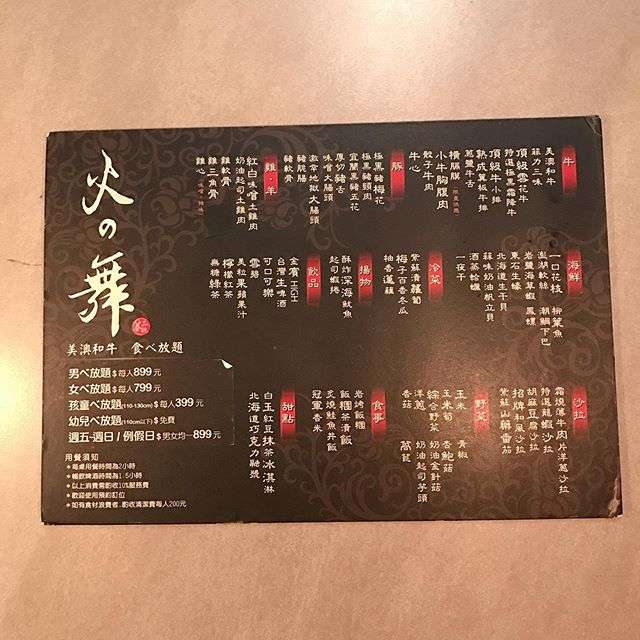 牛
美澳和牛
菲力三味
頂級雪花牛
特選極黑霜降牛
頂級牛小排
熟成翼板牛排
蔥鹽牛舌
橫膈膜(限量供應)
小牛胸腹肉
骰子牛肉
牛心
豚
極黑豬梅花
極黑豬頸肉
宜蘭黑豬五花
厚切豬舌
味噌大腸頭
激辛地獄大腸頭
豬脆腸
豬軟骨
雞、羊
紅白味噌土雞肉
奶油起司土雞肉
雞軟骨
雞三角骨
雞心
海鮮
一口花枝
柳葉魚
澎湖軟絲
潮鯛下巴
岩鹽海草蝦
鳳螺
東石生蠔
北海道生干貝
蒜味奶油帆立貝
酒蒸蛤蠣
一夜干
冷菜
紫蘇漬蘿蔔
梅子百香冬瓜
柚香蓮藕
揚物
酥炸深海魷魚
起司蝦捲
飲品
金賓HIGH
台灣生啤酒
可口可樂
雪碧
美粒果蘋果汁
檸檬紅茶
無糖綠茶
沙拉
霜燒薄牛肉片洋蔥沙拉
特選龍蝦沙拉
胡麻豆腐沙拉
招牌和風沙拉
紫蘇山藥番茄
野菜
玉米
青椒
玉米筍
杏鮑菇
綜合野菜
奶油金針菇
洋蔥
奶油起司芋頭
香菇
萵苣
食事
岩烤飯糰
飯糰茶漬飯
炙燒鮭魚丼飯
冠軍香米
甜點
白玉紅豆抹茶冰淇淋
北海道巧克力融漿
火の舞
美澳和牛 食べ放題
男べ放題$每人899元
女べ放題$每人799元
孩童べ放題(110-130cm)$每人399元
幼兒べ放題(110cm以下)$免費
週五-週日/例假日$男女均一899元
用餐須知
*每桌用餐時間為2小時
*暢飲啤酒時間為1.5小時
*以上消費需酌收10%服務費
*歡迎使用預約訂位
*如有食材浪費者.酌收清潔費每人200元